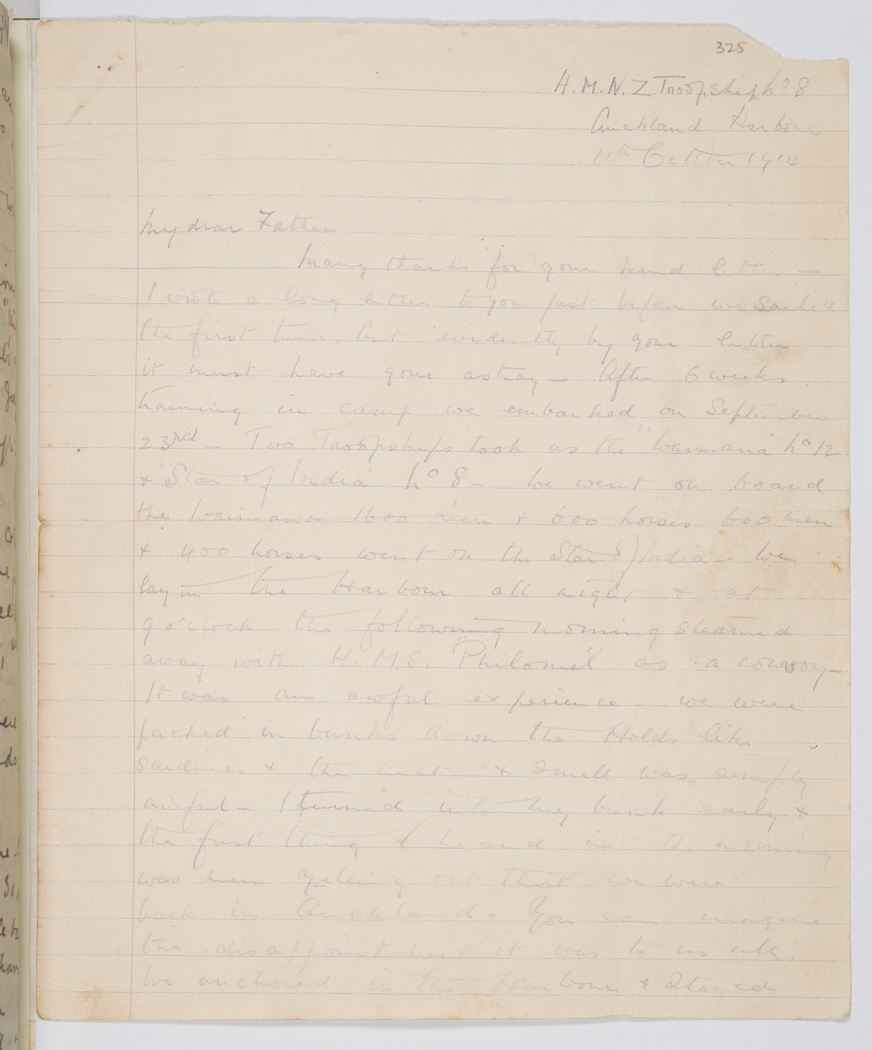 325
H.M.N.Z Troopship No 8
Auckland Harbour
11th October 1914
My dear Father
Many thanks for your kind letter —
I wrote a long letter to you just before we sailed
the first time, but evidently by your letter
it must have gone astray — After 6 weeks
training in camp we embarked on September
23rd — Two Troopships took us the "Waimana" No 12
& "Star of India" No 8 — We went on board
the Waimana 1600 men & 600 horses 600 men
& 400 horses went on the Star of India — We
lay in the Harbour all night & at
9 o'clock the following morning steamed
away with H.M.S. "Philomel" as a convoy —
It was an awful experience — we were
packed in bunks down the Holds like
sardines & the heat & smell was simply
awful — I turned into my bunk early &
the first thing I heard in the morning
was men yelling out that we were
back in Auckland — You can imagine
the disappointment it was to us all.
We anchored in the Harbour & stayed